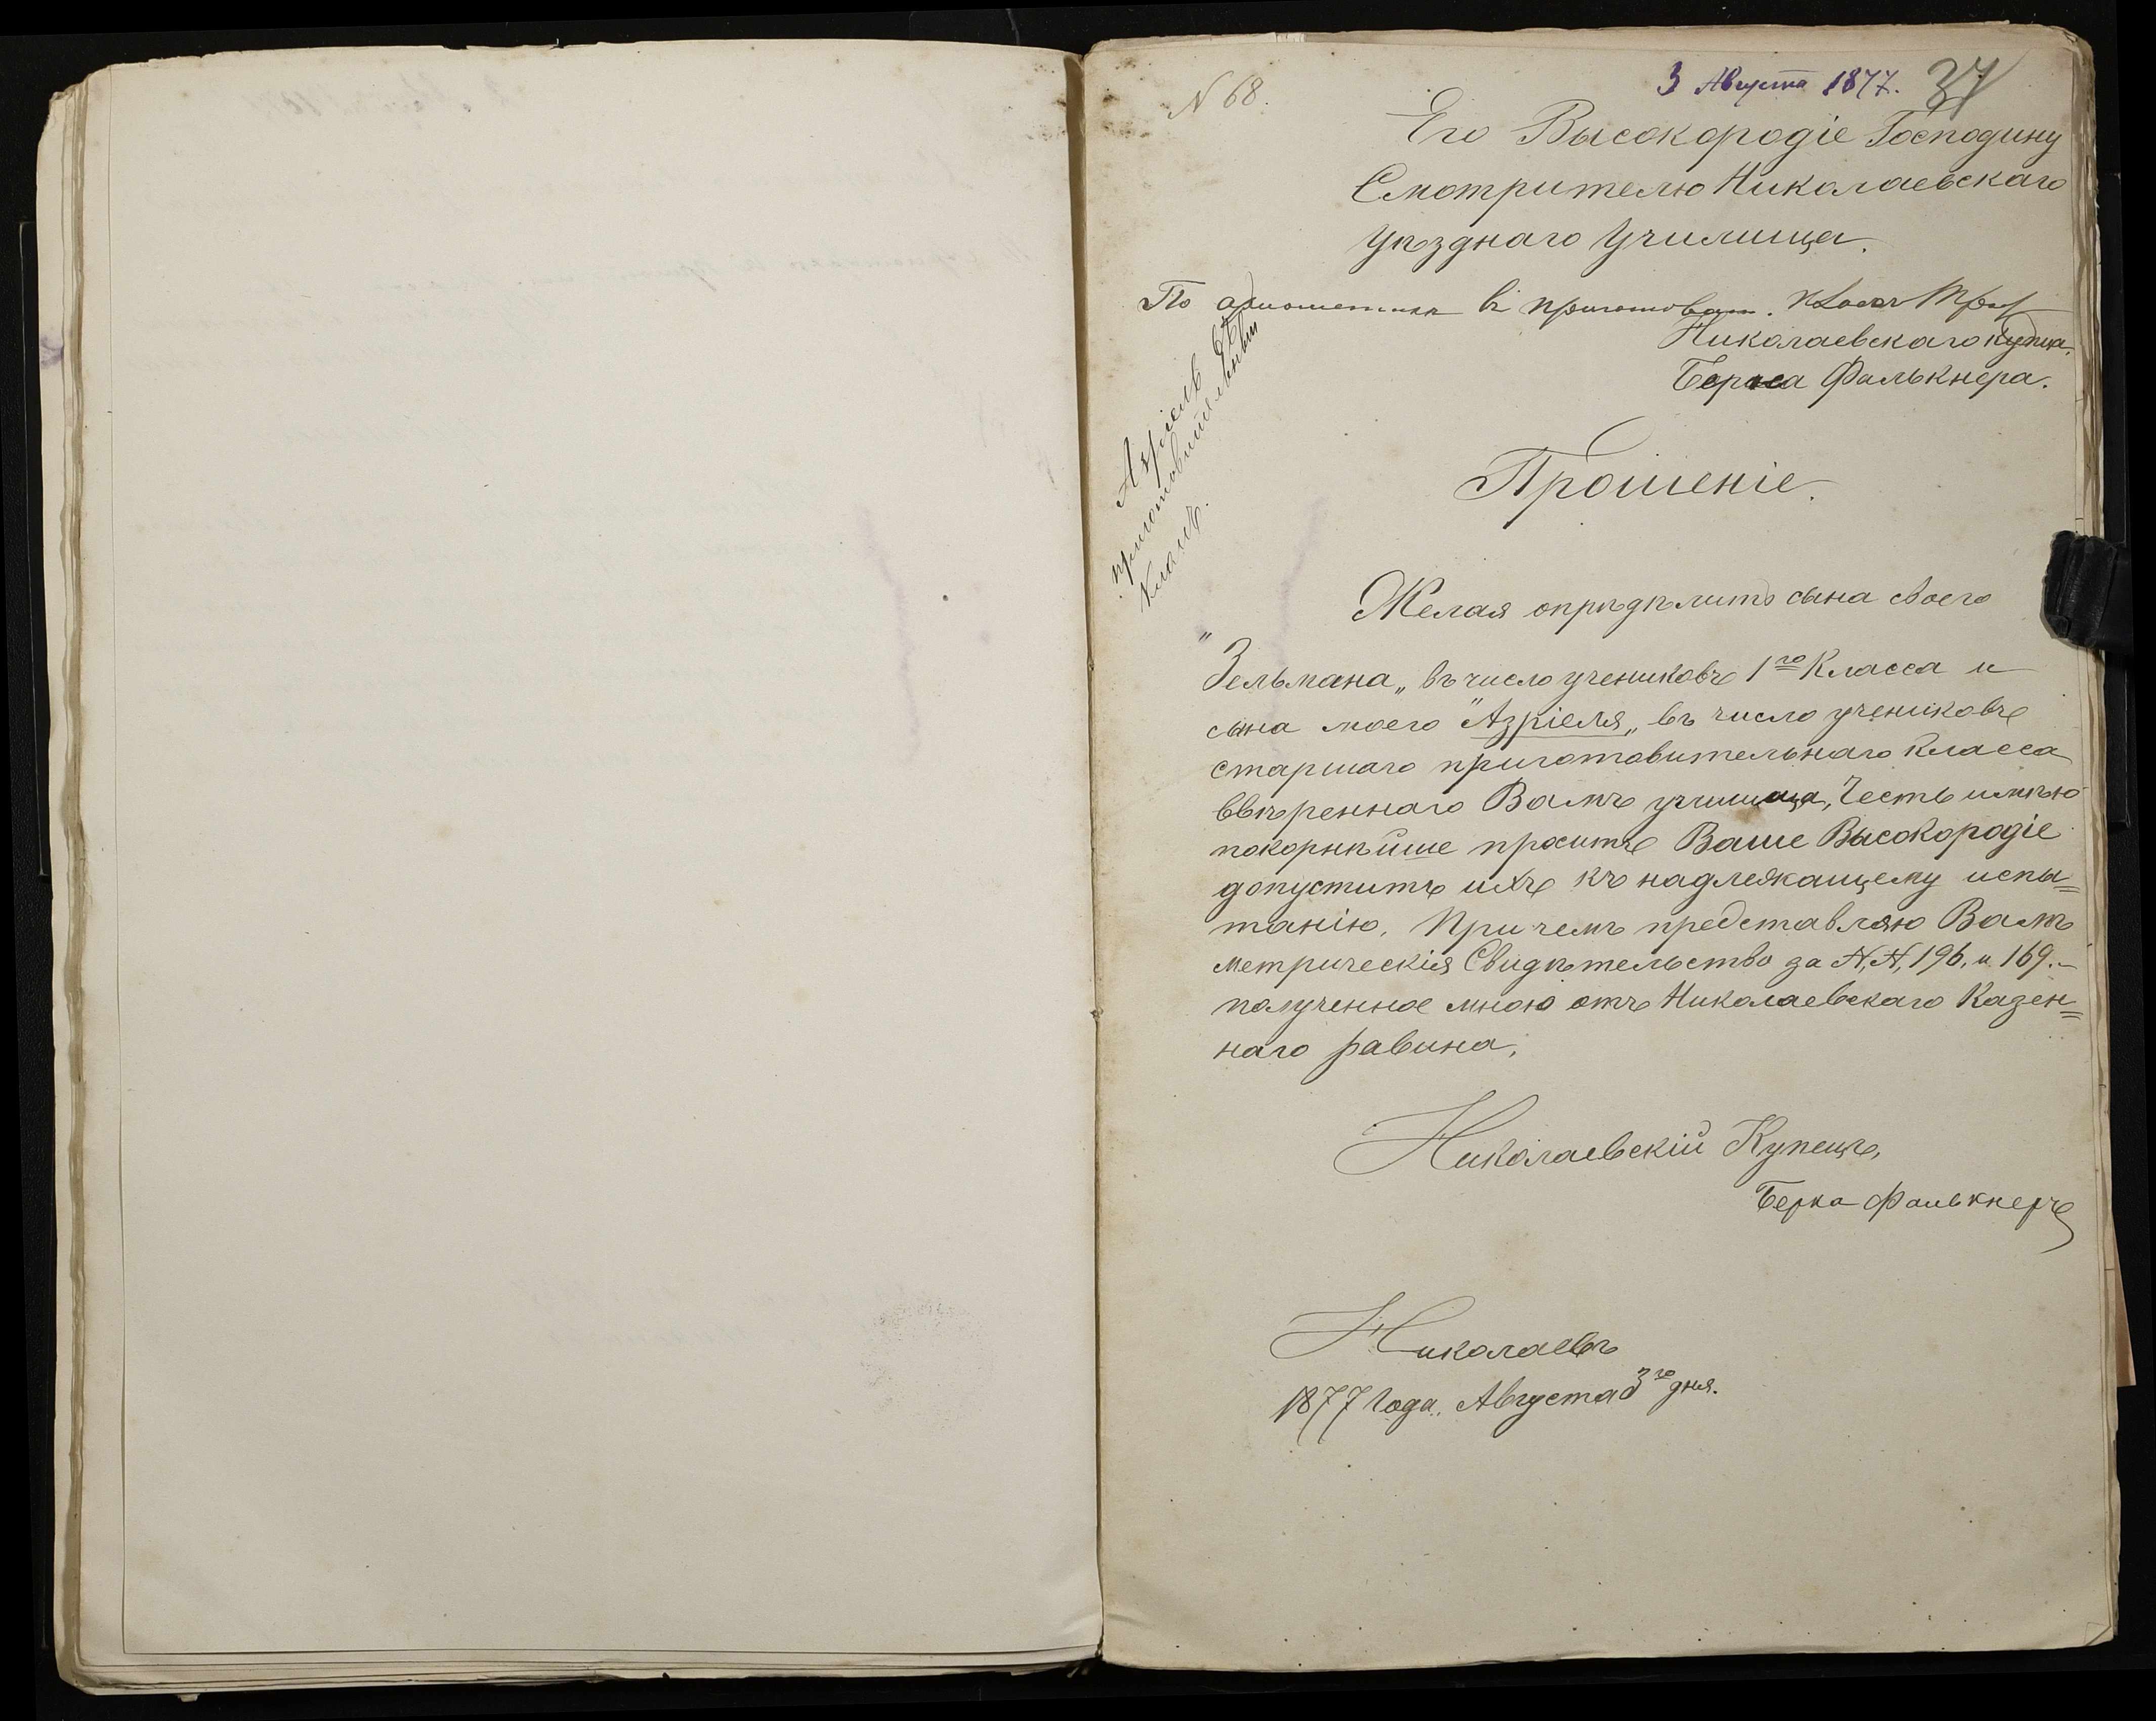 N 68.
3 Августа 1877.
37
Его Высокородіе Господину
Смотрителю Николаевскаго
Уѣзднаго Училища.
По ариѳметикѣ въ приготоват. классъ
Николаевскаго купца,
Берка Фалькнера.
Азріель въ
приготовительный
классъ.
Прошеніе.
Желая опрѣдѣлить сына своего
"Зельмана„ въ число учениковъ 1го Класса и
сына моего "Азріеля„ въ число учениковъ
старшаго приготовительнаго Класса
ввѣреннаго Вамъ училища, Честь имѣю
покорнѣйше проситъ Ваше Высокородіе
допустить ихъ къ надлежащему испы=
танію, При чемъ представляю Вамъ
метрическія Свидѣтельство за N,N, 196, и 169.-
полученное мною отъ Николаевскаго Казен=
наго равина,
Николаевскій Купецъ,
Берка Фалькнеръ
Николаевъ
1877 Года„ Августа 3го дня.